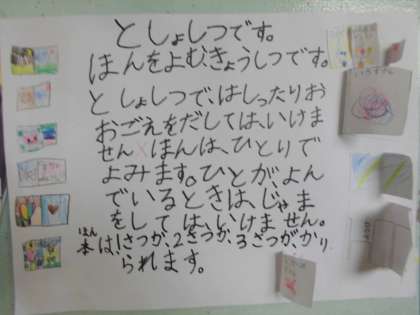 としょしつです。
ほんをよむきょうしつです。
としょしつで、はしったりおお
おごえをだしては、いけま
せん×ほんは、ひとりで
よみます。ひとが、よん
でいるときは、じゃま
をしては、いけません。
ほん
本は、1さつか、2さつか、3さつがかり
られます。